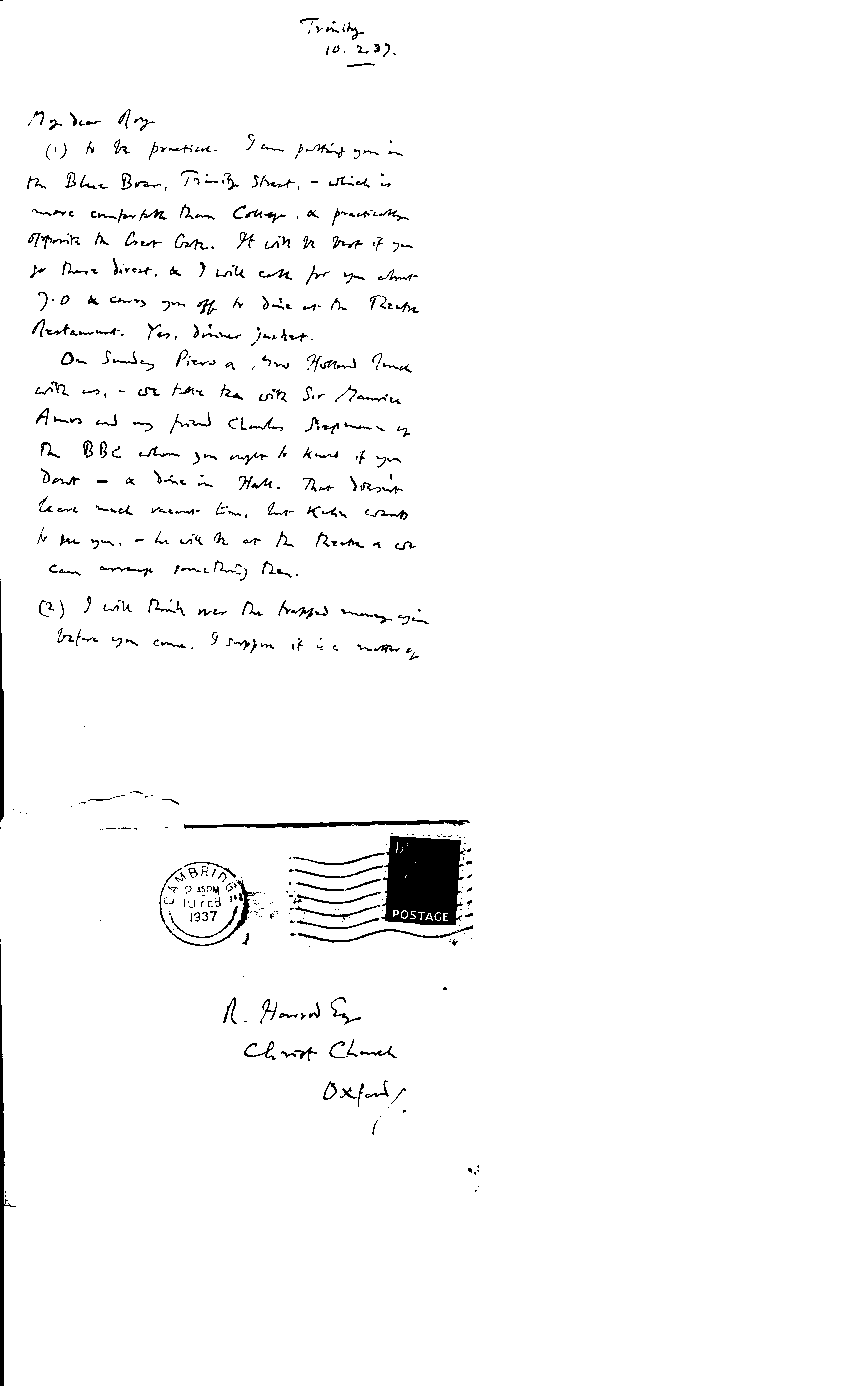 Trinity
10.2.37.
My dear Roy
(1) to be practical. I am putting you in
the Blue Boar, Trinity Street, – which is
more comfortable than College, & practically
opposite the Great Gate. It will be best if you
go there direct, & I will call for you about
7.0 & carry you off to dine at the Theatre
Restaurant. Yes, dinner jacket.
On Sunday Piero & Mrs Holland lunch
with us, – we take tea with Sir Maurice
Amos and my friend Charles
the BBC whom you ought to know if you
don't – & dine in Hall. That doesn't
leave much vacant time, but Kahn wants
to see you, – he will be at the theatre & we
can arrange something then.
(2) I will think over the trapped money again
before you come. I suppose it is a matter of
CAMBRIDGE
2 45PM
10 FEB
1937
POSTAGE
R. Harrod Esq
Christ Church
Oxford